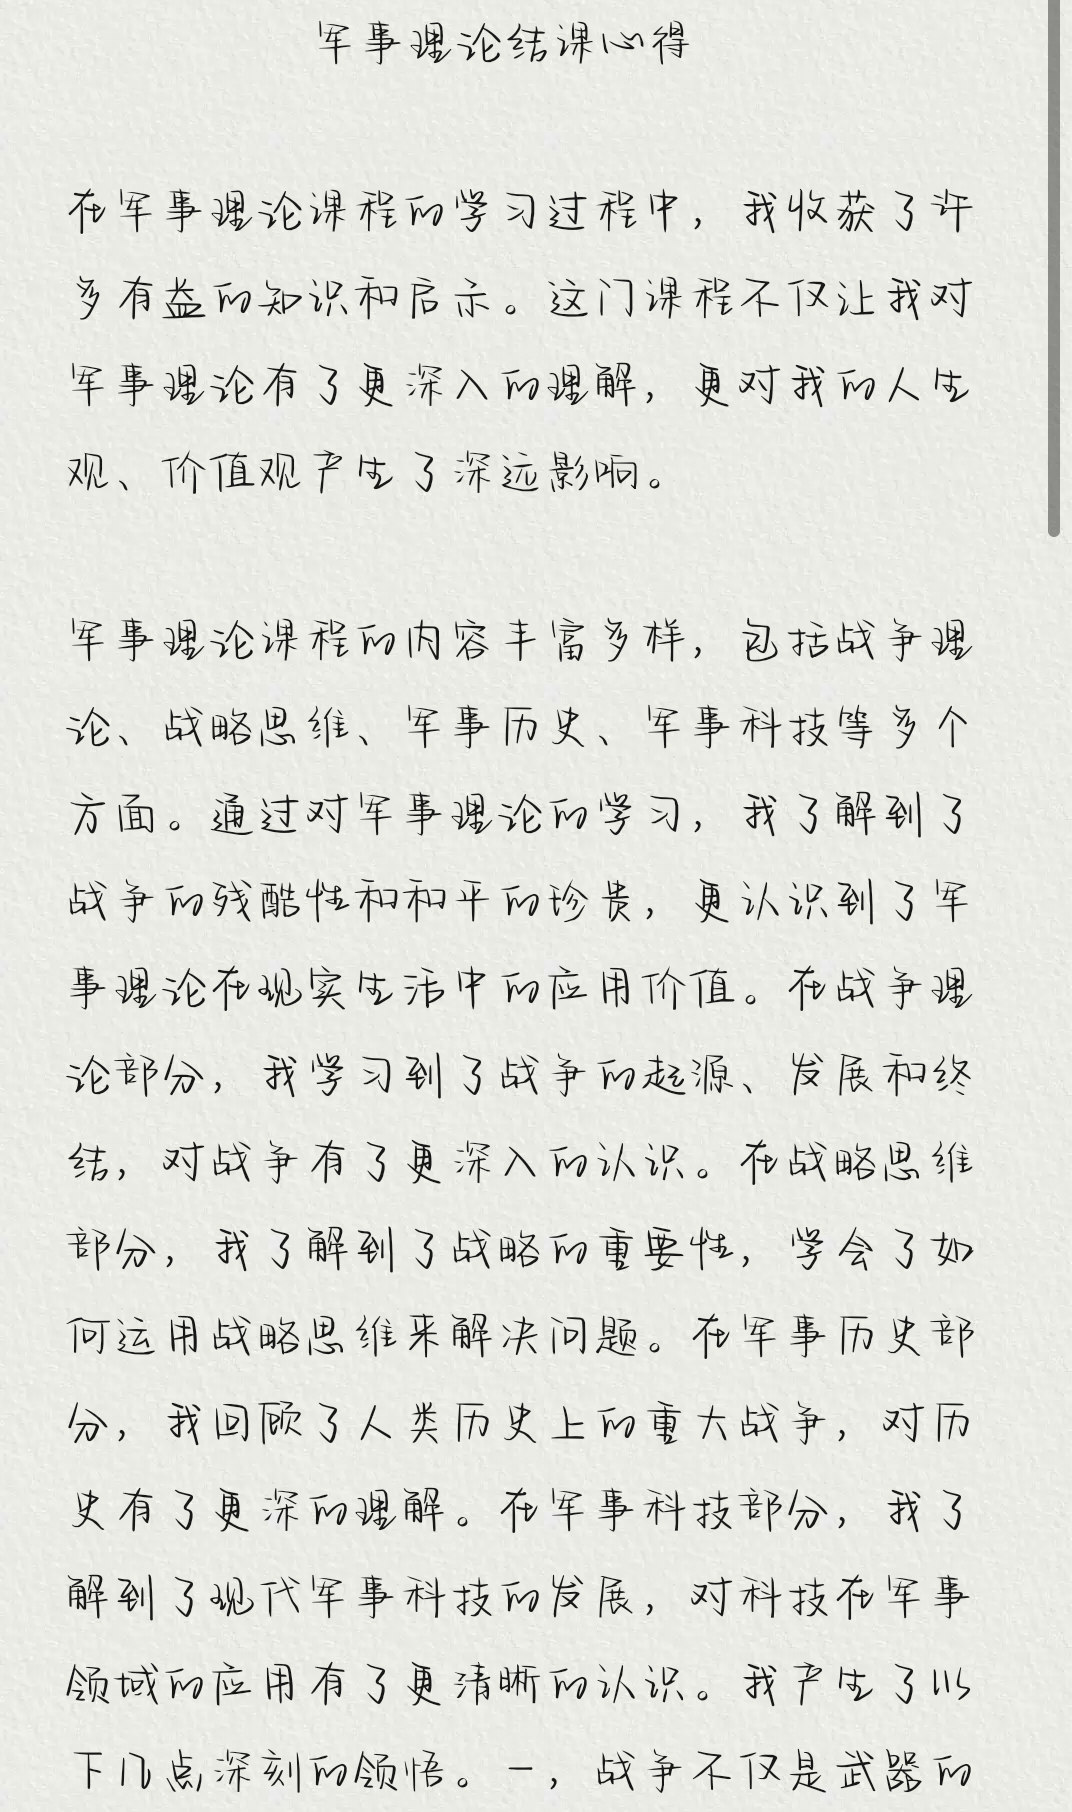 军事理论结课心得
在军事理论课程的学习过程中，我收获了许
多有益的知识和启示。这门课程不仅让我对
军事理论有了更深入的理解，更对我的人生
观、价值观产生了深远影响。
军事理论课程的内容丰富多样，包括战争理
论、战略思维、军事历史、军事科技等多个
方面。通过对军事理论的学习，我了解到了
战争的残酷性和和平的珍贵，更认识到了军
事理论在现实生活中的应用价值。在战争理
论部分，我学习到了战争的起源、发展和终
结，对战争有了更深入的认识。在战略思维
部分，我了解到了战略的重要性，学会了如
何运用战略思维来解决问题。在军事历史部
分，我回顾了人类历史上的重大战争，对历
史有了更深的理解。在军事科技部分，我了
解到了现代军事科技的发展，对科技在军事
领域的应用有了更清晰的认识。我产生了以
下几点深刻的领悟。一，战争不仅是武器的